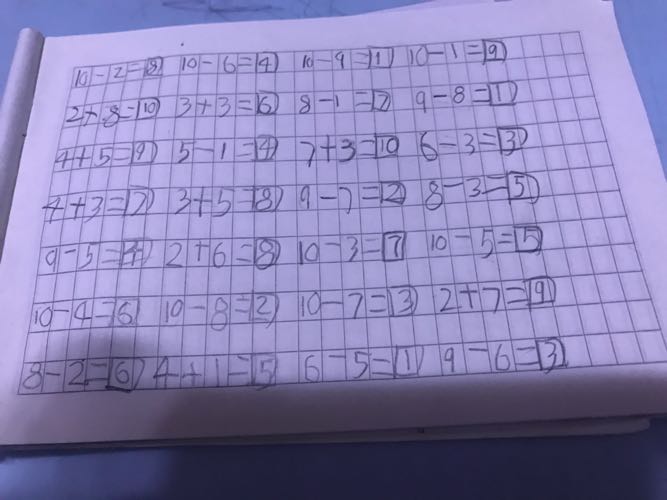 10-2=8 10-6=4 10-9=1 10-1=9
2+8=10 3+3=6 8-1=7 9-8=1
4+5=9 5-1=4 7+3=10 6-3=3
4+3=7 3+5=8 9-7=2 8-3=5
9-5=4 2+6=8 10-3=7 10-5=5
10-4=6 10-8=2 10-7=3 2+7=9
8-2=6 4+1=5 6-5=1 9-6=3